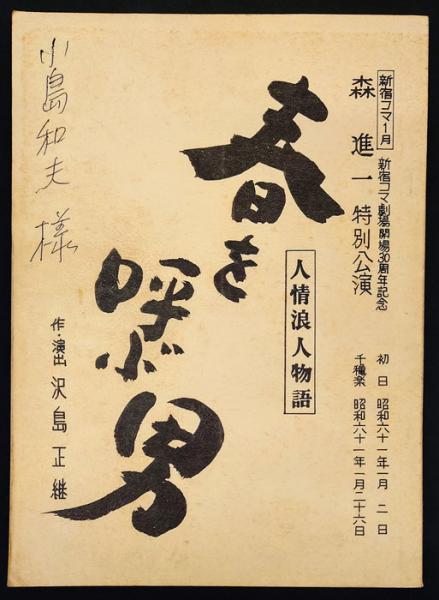 新宿コマ1月
新宿コマ劇場開場30周年記念
森進一特別公演
初日 昭和六十一年一月二日
千穐楽 昭和六十一年一月二十六日
人情浪人物語
春を
呼ぶ
男
作・演出 沢島正継
小島和夫様